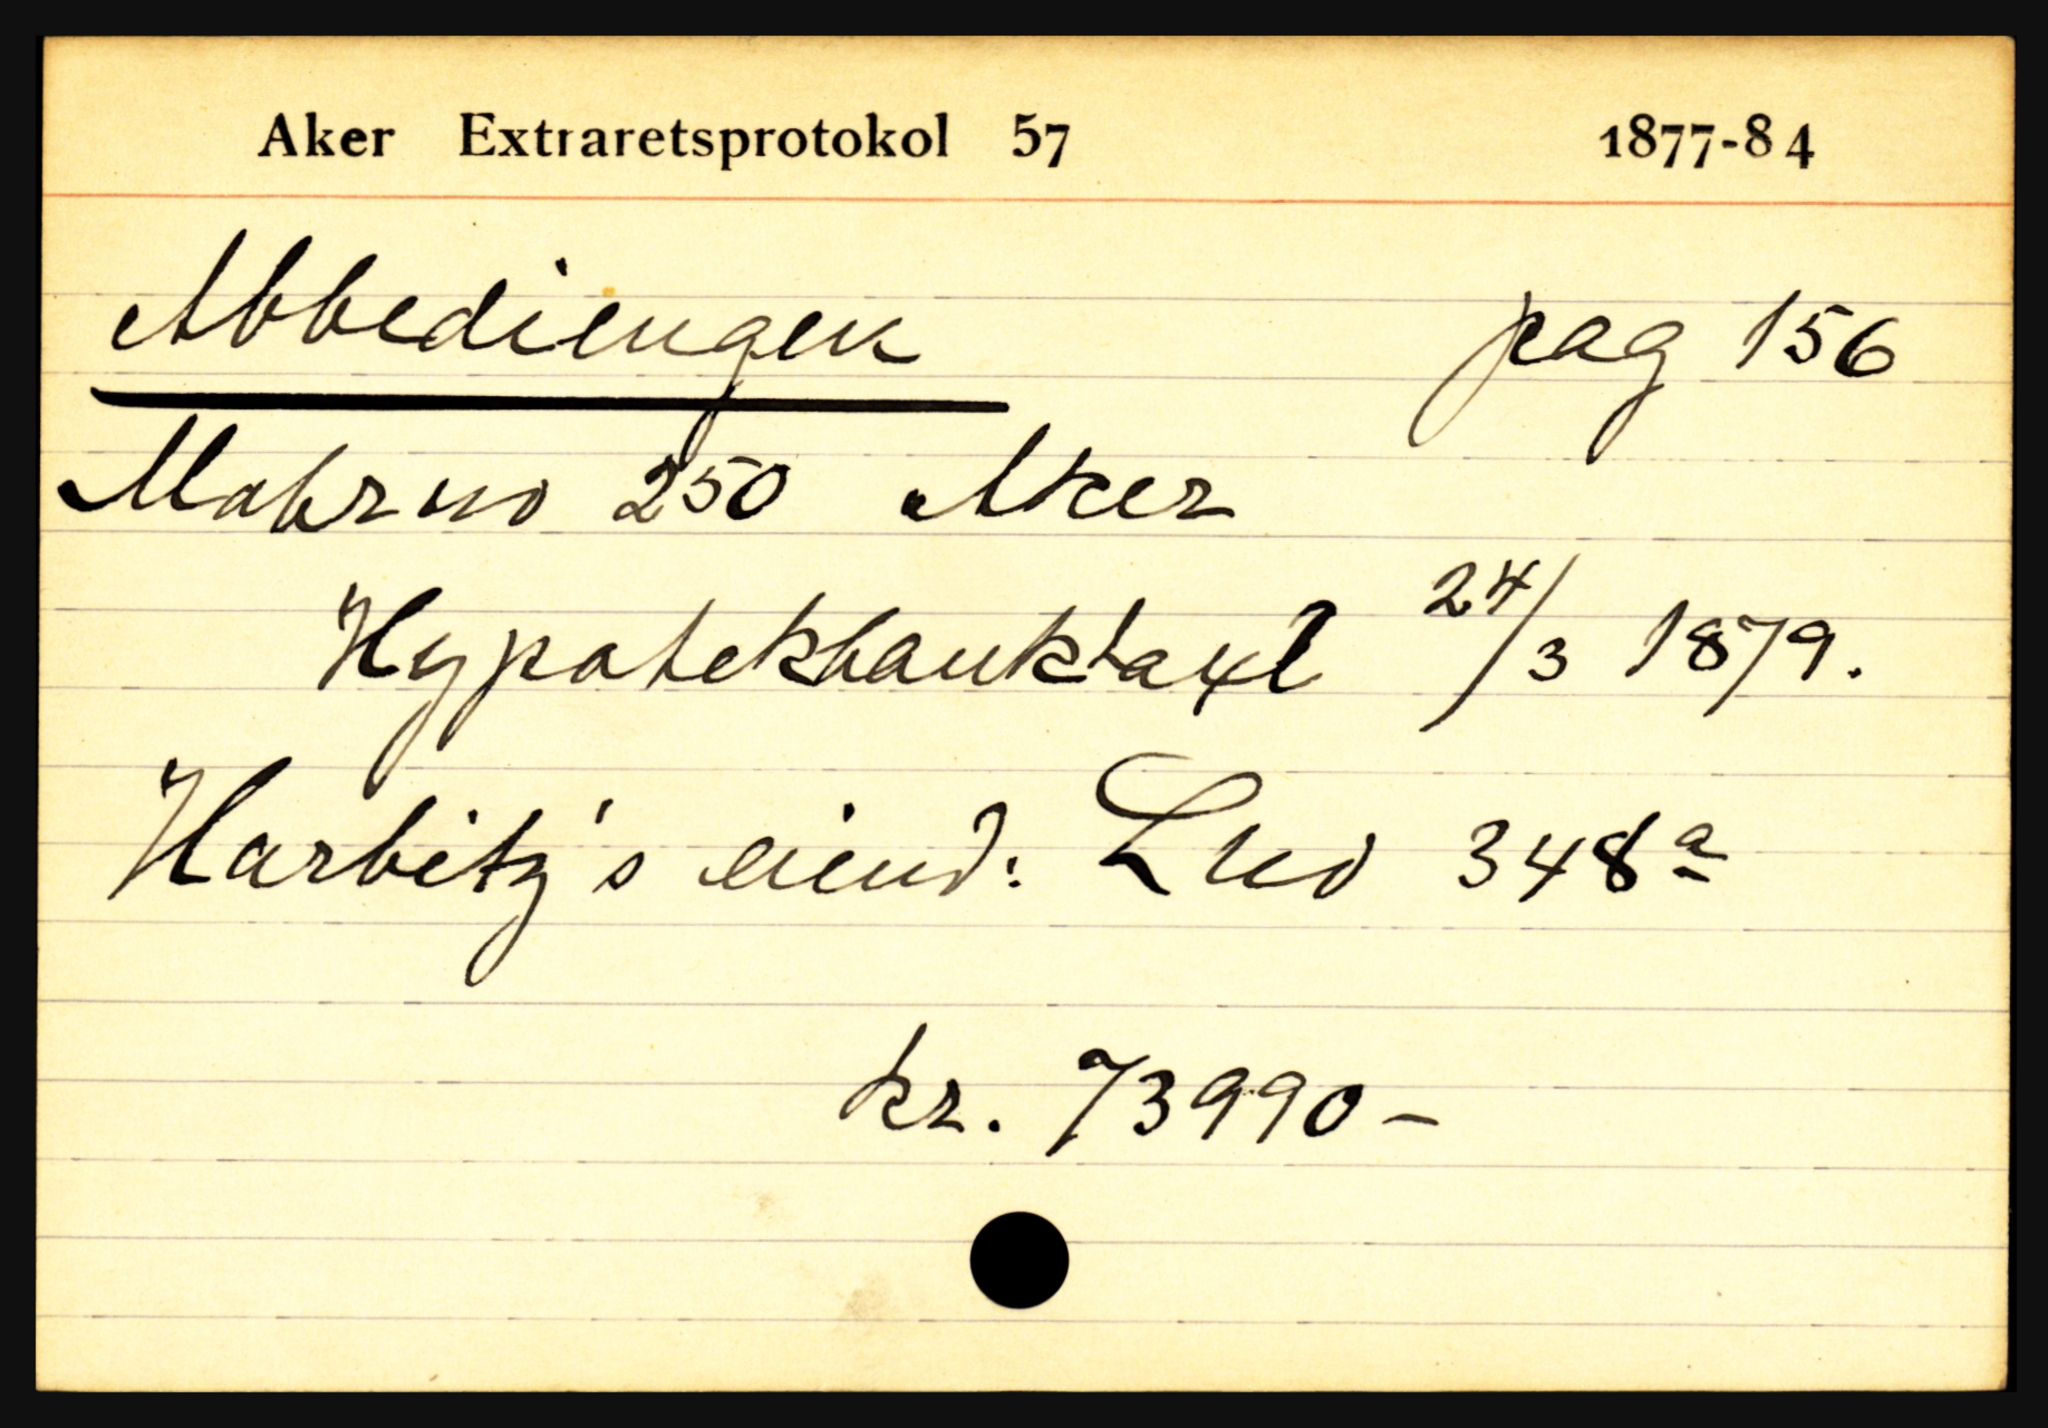 Aker Extraretsprotokol 57 1877-84
Abbediengen pag 156
Matrno 250 Aker
Hypotekbanktaxt 24/3 1879.
Harbitz's eiend: Lno 348a
kr. 73990-